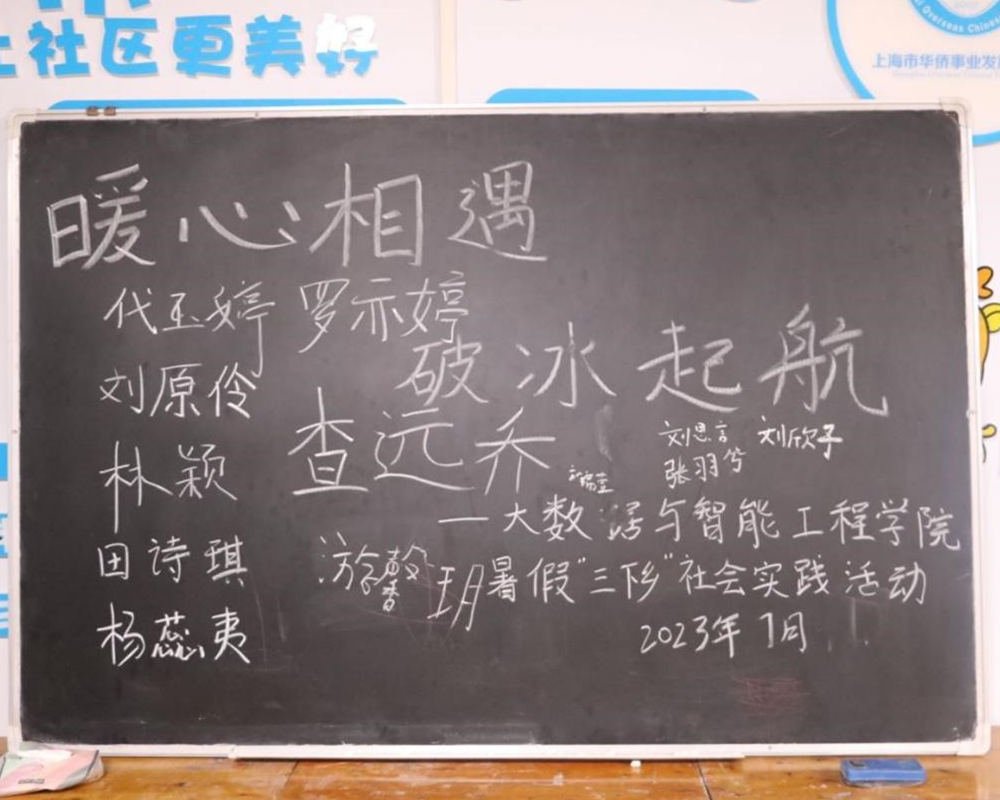 社区更美好
上海市华侨事业发
暖心相遇
代玉婷 罗示婷
破冰起航
刘原伶
查远乔
刘思言 刘欣子
张羽兮
林颖
一大数 与智能工程学院
田诗琪
玥
暑假"三下乡"社会实践活动
杨蕊夷
2023年7月